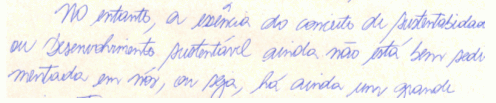 No entanto, a essência do conceito de sustentabidaa
ou Desenvolvimento sustentável ainda não está bem sedi
mentada em nós, ou seja, há ainda um grande